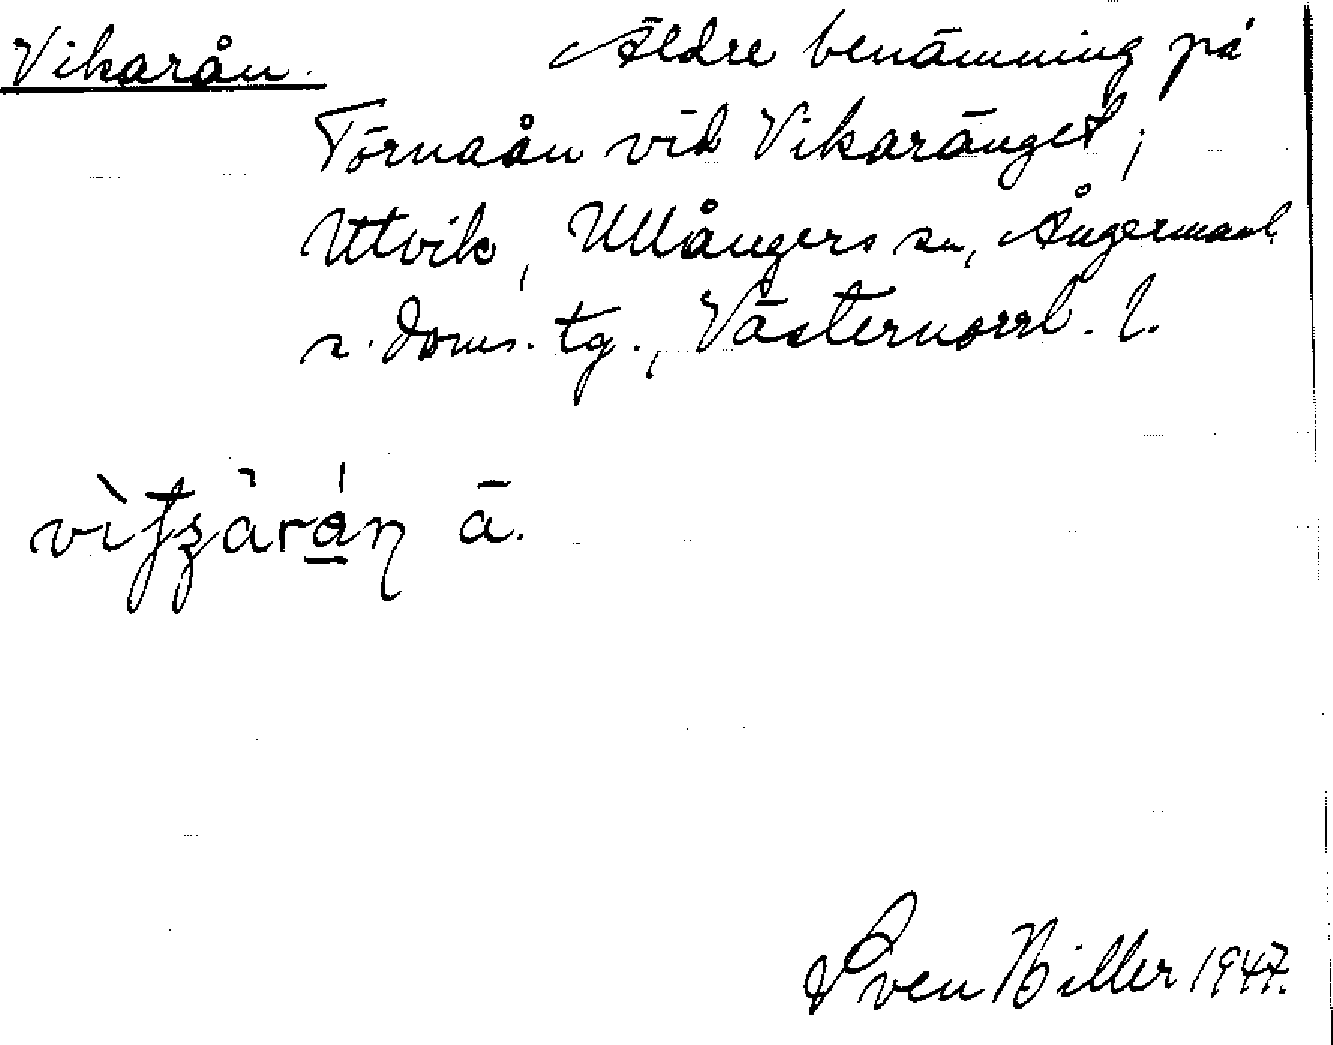 Vikarån. Äldre benämning på
Törnaån vid Vikaränget,
Utvik, Ullångers sn, Ångermanl.
s. doms. tg., Västernorrl. l.
ā.
Sven Hiller 1947.